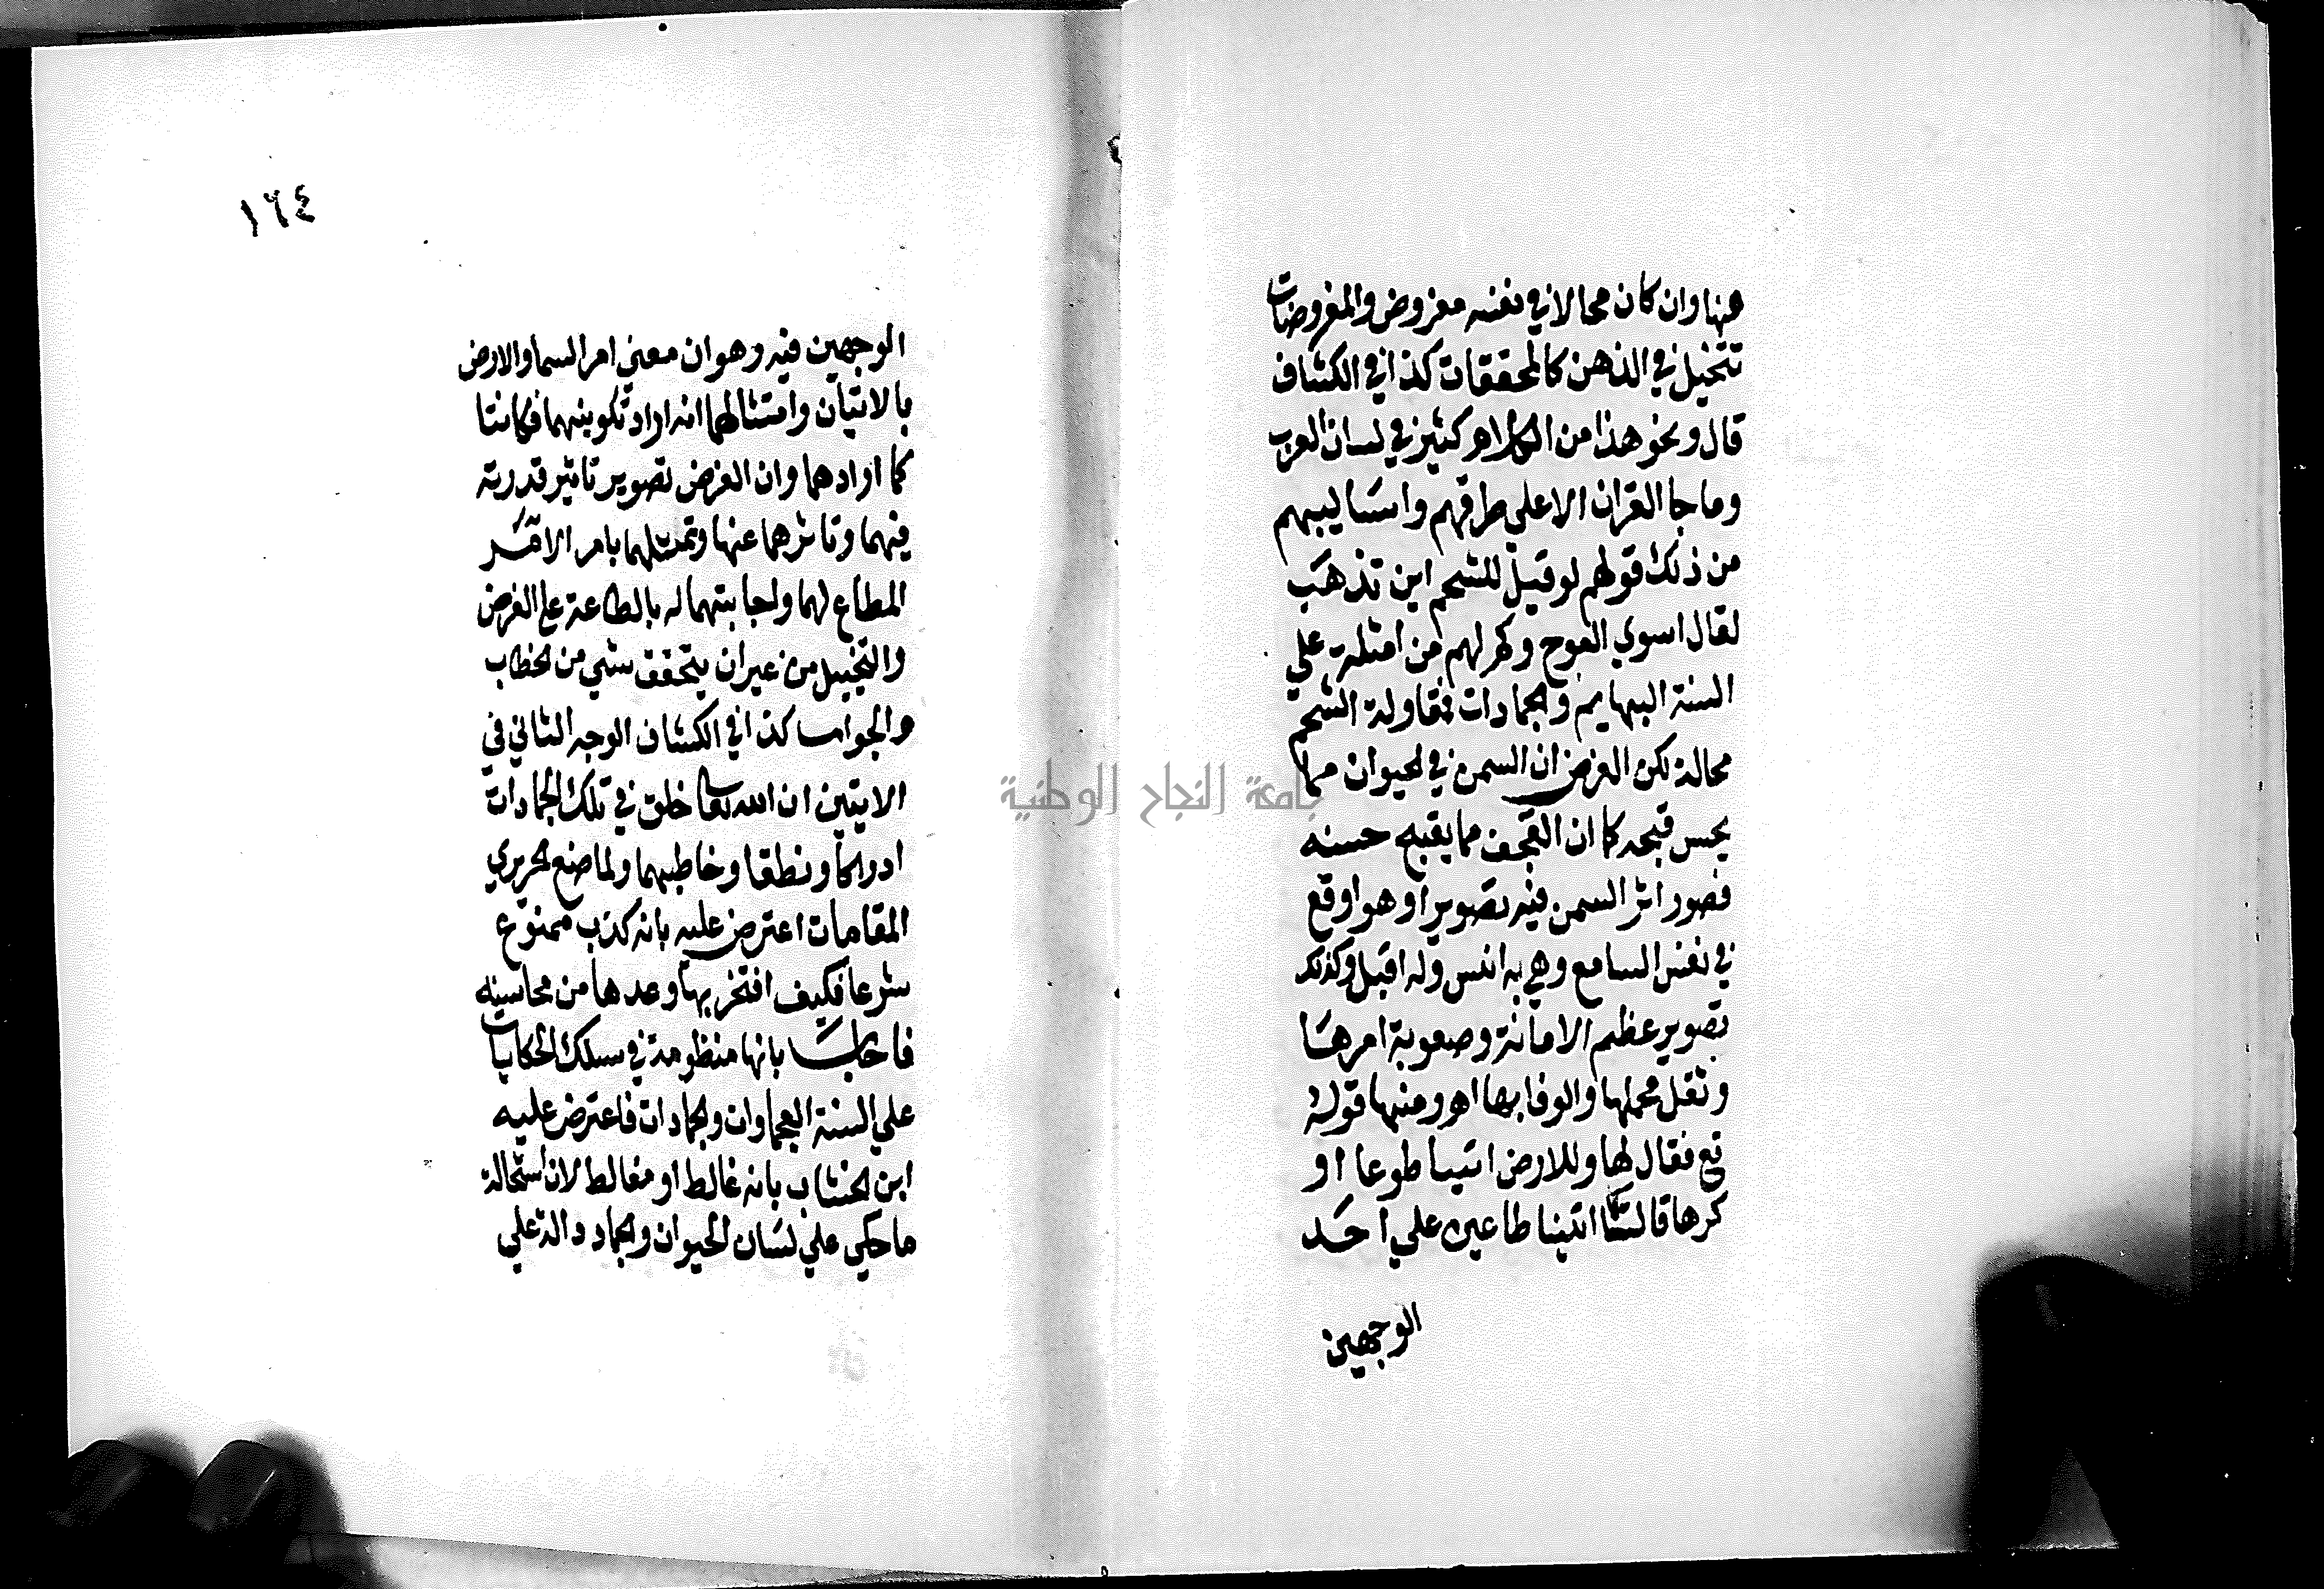 هنا وان كان محالا في نفسه مفروض والمفروضات
تتخيل في الذهن كالمحققات كذا في الكشاف
قال ونحو هذا من الكلام كثير في لسان العرب
وما جا القران الا علي طرقهم واساليبهم
من ذلك قولهم لو قيل للشحم اين تذهب
لقال اسوي العوج وكم لهم من امثلة علي
السنة البهايم والجمادات فمقاولة الشحم
محالة لكن الغرض ان السمن في الحيوان مما
يحسن قبحه كما ان العجف مما يقبح حسنه
فصور اثر السمن فيه تصويرا وهو اوقع
في نفس السامع وهي به انس وله اقبل وكذلك
تصوير عظم الامانة وصعوبة امرها
وثقل محملها والوفا بها اهـ ومنها قوله
تع فقال لها وللارض ائتيا طوعا او
كرها قالتا اتينا طاعين علي احد
الوجهين
١٦٤
الوجهين فيه وهو ان معني امر السما والارض
بالاتيان وامتثالهما انه اراد تكوينهما فكانتا
كما ارادهما وان الغرض تصوير تاثير قدرته
فيهما وتاثرهما عنها وتمثيلهما بامر الامر
المطاع لهما واجابتهما له بالطاعة علي الفرض
والتخييل من غير ان يتحقق شي من الخطاب
والجواب كذا في الكشاف الوجه الثاني في
الايتين ان الله تعا خلق في تلك الجمادات
ادراكا ونطقا وخاطبهما ولما صنع الحريري
المقامات اعترض عليه بانه كذب ممنوع
شرعا فكيف افتخر بها وعدها من محاسنه
فاجاب بانها منظومة في سلك الحكايات
علي السنة العجماوات والجمادات فاعترض عليه
ابن الخشاب بانه غالط او مغالط لان استحالة
ما حكي علي لسان الحيوان والجماد دالة علي
جامعة النجاح الوطنية